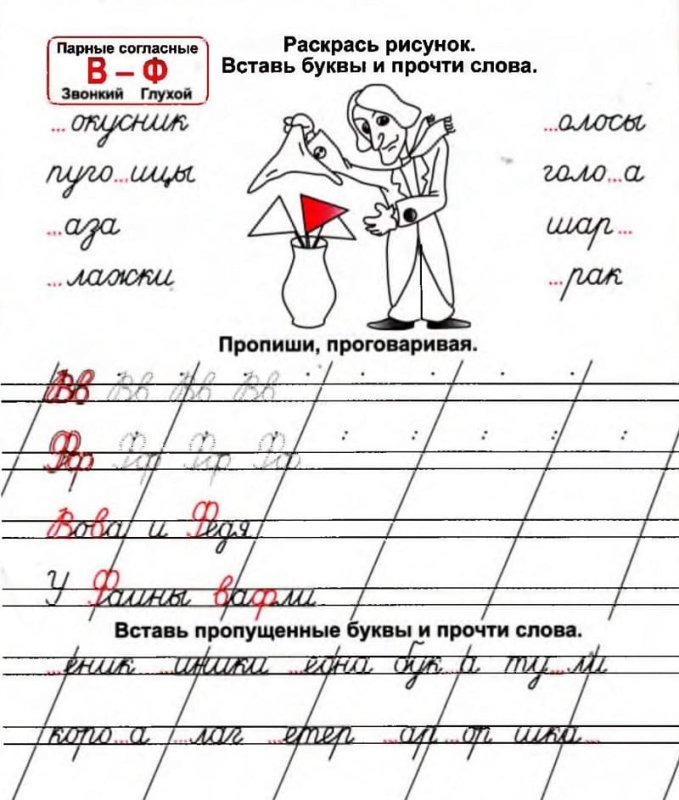 Парные согласные
В – Ф
Звонкий Глухой
Раскрась рисунок.
Вставь буквы и прочти слова.
...окусник
пуго...ицы
...аза
...лажки
...олосы
голо...а
шар...
...рак
Пропиши, проговаривая.
Вв Вв Вв Вв
Фф Фф Фф Фф
Вова и Федя
У Фаины вафли
Вставь пропущенные буквы и прочти слова.
...еник ...иники ...есна бук...а ту...ли
коро...а ...лаг ...етер ...ар...ор шка...